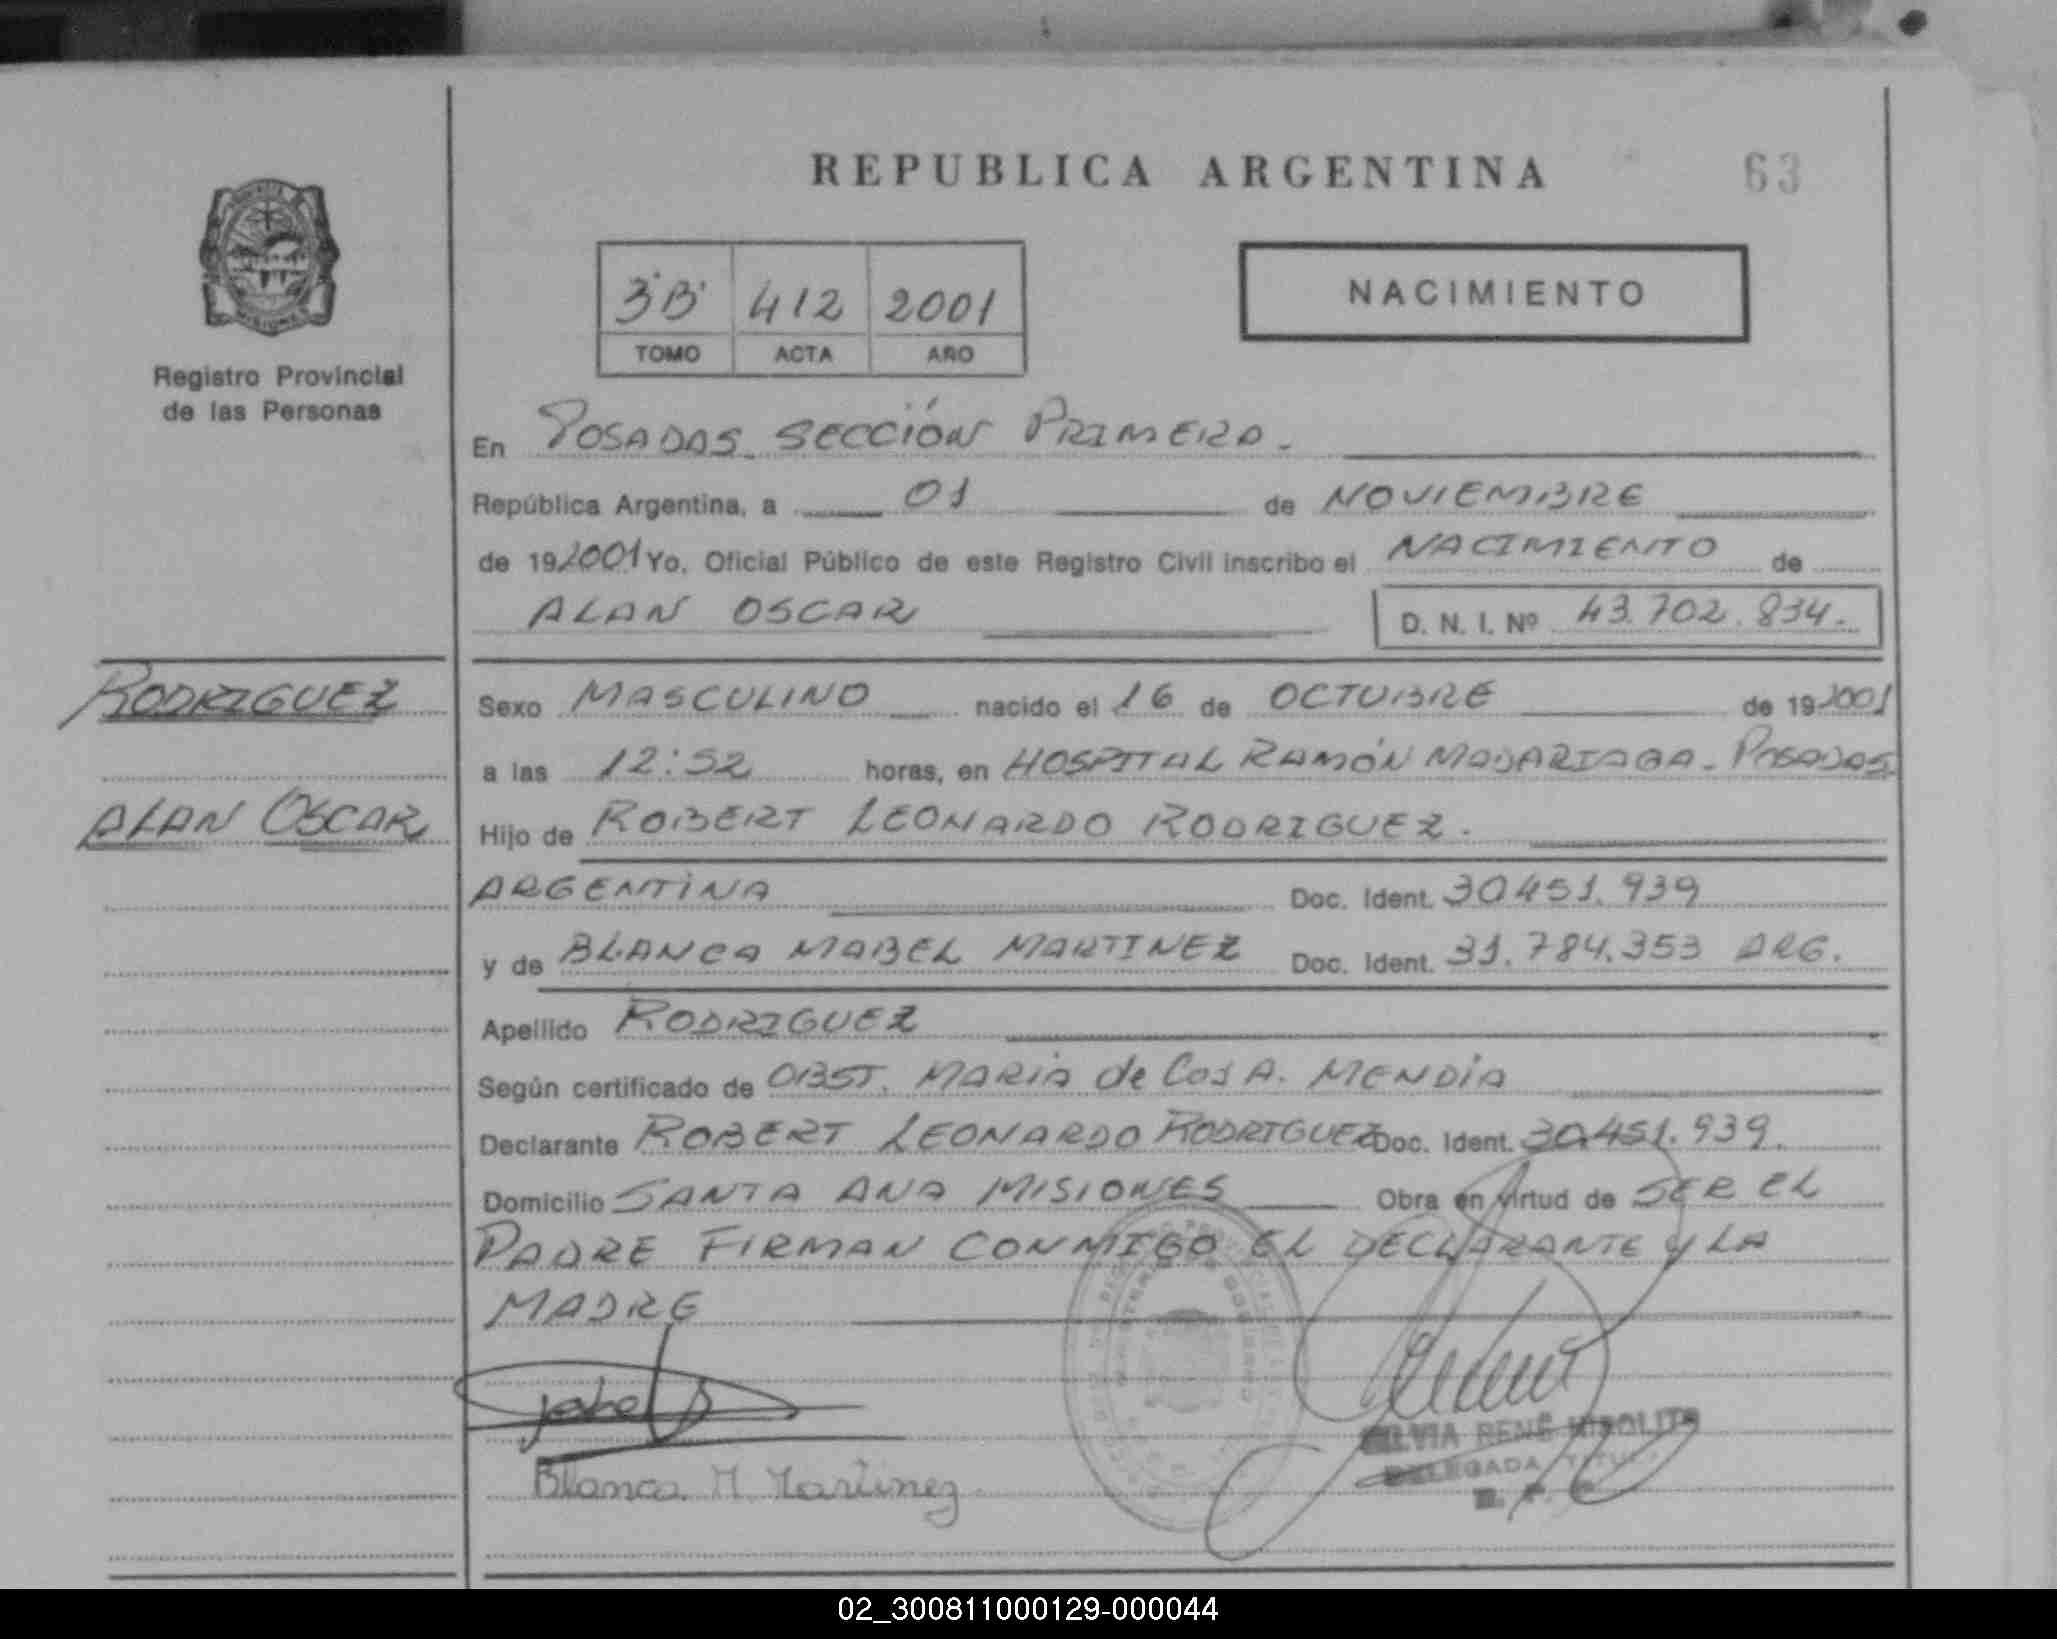 REPUBLICA ARGENTINA
63
3"B" 412 2001
TOMO ACTA AÑO
NACIMIENTO
MISIONES
Registro Provincial
de las Personas
En POSADAS. SECCIÓN PRIMERA.
República Argentina, a 01 de NOVIEMBRE
de 192001 Yo, Oficial Público de este Registro Civil inscribo el NACIMIENTO de
ALAN OSCAR D. N. I. Nº 43.702.834.
RODRIGUEZ
ALAN OSCAR
Sexo MASCULINO nacido el 16 de OCTUBRE de 192001
a las 12:52 horas, en HOSPITAL RAMÓN MADARIAGA - POSADAS
Hijo de ROBERT LEONARDO RODRIGUEZ.
ARGENTINA Doc. Ident. 30451.939
y de BLANCA MABEL MARTINEZ Doc. Ident. 31.784.353 ARG.
Apellido RODRIGUEZ
Según certificado de OBST. MARIA de Los A. MENDIA
Declarante ROBERT LEONARDO RODRIGUEZ Doc. Ident. 30.451.939.
Domicilio SANTA ANA MISIONES Obra en virtud de SER EL
PADRE FIRMAN CONMIGO EL DECLARANTE Y LA
MADRE
SILVIA RENÉ HIPOLITO
DELEGADA TITULAR
Blanca M. Martinez
02_300811000129-000044